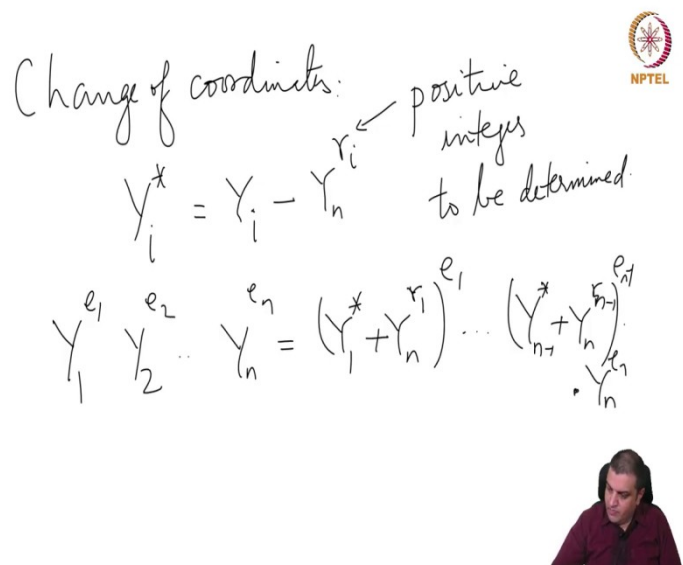 NPTEL
Change of coordinates:
Y_i^* = Y_i - Y_n^{r_i} ← positive
integers
to be determined.
Y_1^{e_1} Y_2^{e_2} .. Y_n^{e_n} = (Y_1^* + Y_n^{r_1})^{e_1} ... (Y_{n-1}^* + Y_n^{r_{n-1}})^{e_{n-1}}
· Y_n^{e_n}